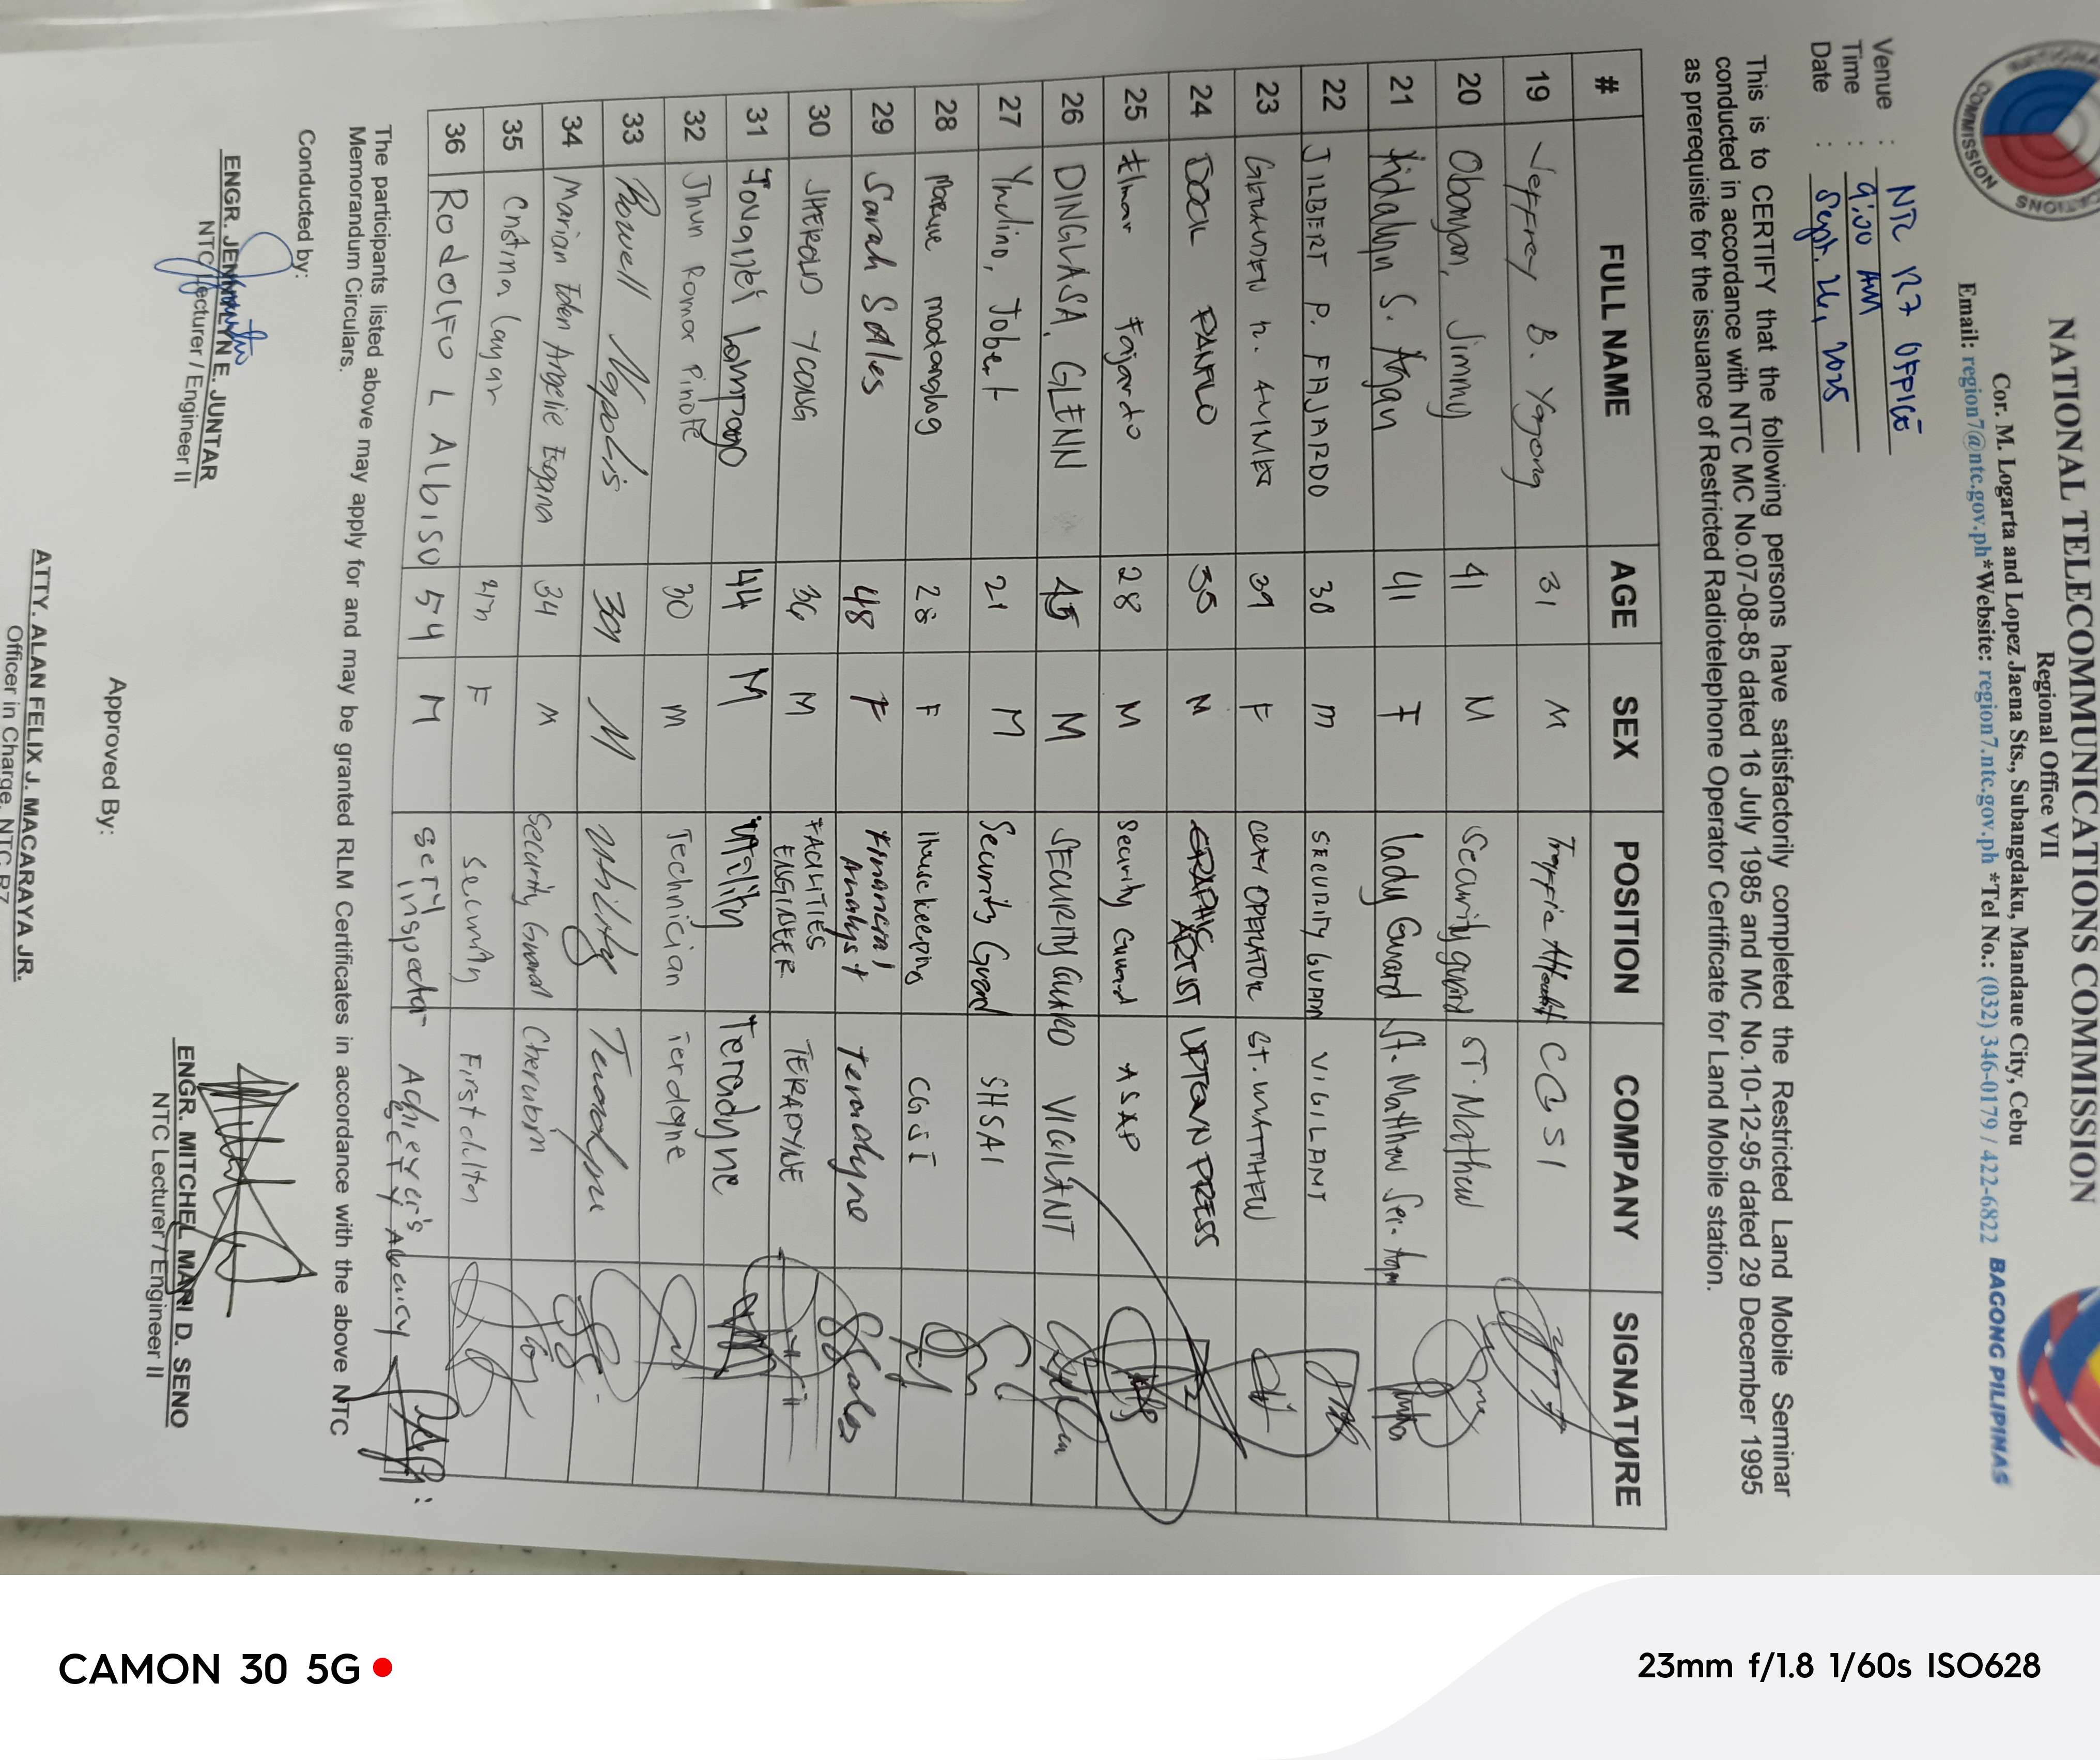 NATIONAL TELECOMMUNICATIONS COMMISSION
Regional Office VII
Cor. M. Logarta and Lopez Jaena Sts., Subangdaku, Mandaue City, Cebu
Email: region7@ntc.gov.ph*Website: region7.ntc.gov.ph *Tel No.: (032) 346-0179 / 422-6822
BAGONG PILIPINAS
COMMISSION
Venue : NTC R7 OFFICE
Time : 9:00 AM
Date : Sept. 24, 2025
This is to CERTIFY that the following persons have satisfactorily completed the Restricted Land Mobile Seminar
conducted in accordance with NTC MC No.07-08-85 dated 16 July 1985 and MC No.10-12-95 dated 29 December 1995
as prerequisite for the issuance of Restricted Radiotelephone Operator Certificate for Land Mobile station.
# FULL NAME AGE SEX POSITION COMPANY SIGNATURE
19 Jeffrey B. Ygong 31 M Traffic CGSI
20 Obanyan, Jimmy 41 M Security guard ST. Mathew
21 Kidalyn S. Angan 41 F lady Guard St. Matthew Ser.
22 JILBERT P. FAJARDO 30 m SECURITY GUARD VIGILANT
23 39 F CCTV OPERATOR ST. MATTHEW
24 PANFLO 35 M GRAPHIC ARTIST UPTOWN PRESS
25 Elmar Fajardo 28 M Security Guard ASAP
26 DINGLASA, GLENN 45 M SECURITY GUARD VIGILANT
27 Ynclino, Jobert 21 M Security Guard SHSAI
28 madanlog 28 F Housekeeping CGSI
29 Sarah Sales 48 F Financial Analyst Teradyne Sales
30 JHEROLD YCONG 36 M FACILITIES ENGINEER TERADYNE
31 Lampago 44 M utility Teradyne
32 Jhun Romar Pinote 30 m Technician Terdayne
33 Rowell 39 M Utility Teradyne
34 Marian Eden Angelie Egana 34 M Security Guard Cherubim
35 Cristina Layar F Security First
36 RodolFo L Albiso 54 M Achiever's AGency
The participants listed above may apply for and may be granted RLM Certificates in accordance with the above NTC
Memorandum Circulars.
Conducted by:
ENGR. JENNALYN E. JUNTAR
NTC Lecturer / Engineer II
ENGR. MITCHEL MARI D. SENO
NTC Lecturer / Engineer II
Approved By:
ATTY. ALAN FELIX J. MACARAYA JR.
Officer in Charge, NTC R7
CAMON 30 5G
23mm f/1.8 1/60s ISO628